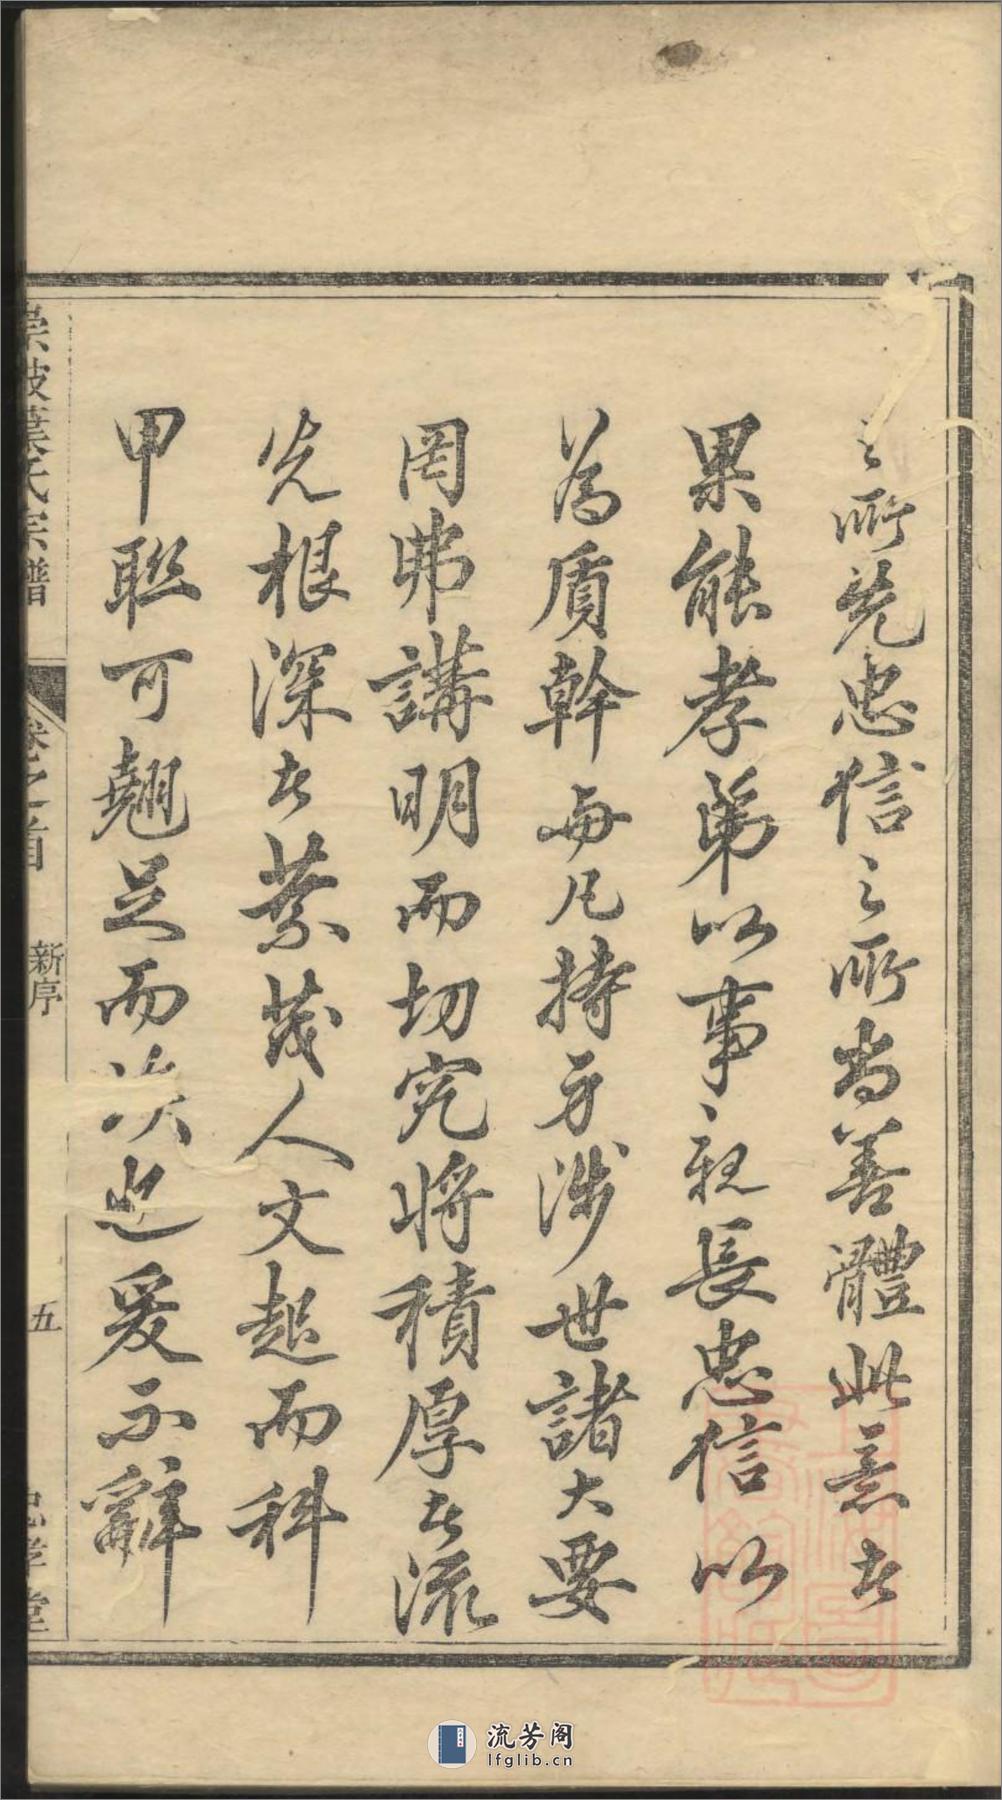 之所先忠信之所尚善體此意者
果能孝弟以事親長忠信以
為質幹每凡持身涉世諸大要
罔弗講明而切究將積厚者流
光根深者葉茂人文起而科
甲聯可翹足而次也爰不辭
葉氏宗譜
卷之首
新序
五
忠孝堂
流芳阁
lfglib.cn